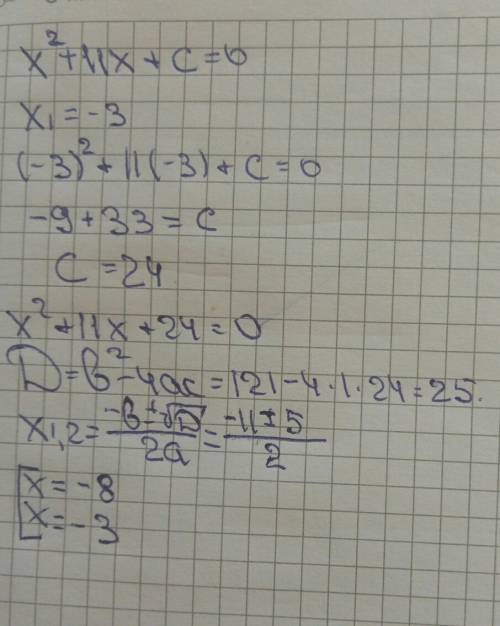 x² + 11x + c = 0
x₁ = -3
(-3)² + 11(-3) + c = 0
-9 + 33 = c
c = 24
x² + 11x + 24 = 0
D = b² - 4ac = 121 - 4 · 1 · 24 = 25.
x₁,₂ = (-b ± √D)/2a = (-11 ± 5)/2
[x = -8
x = -3